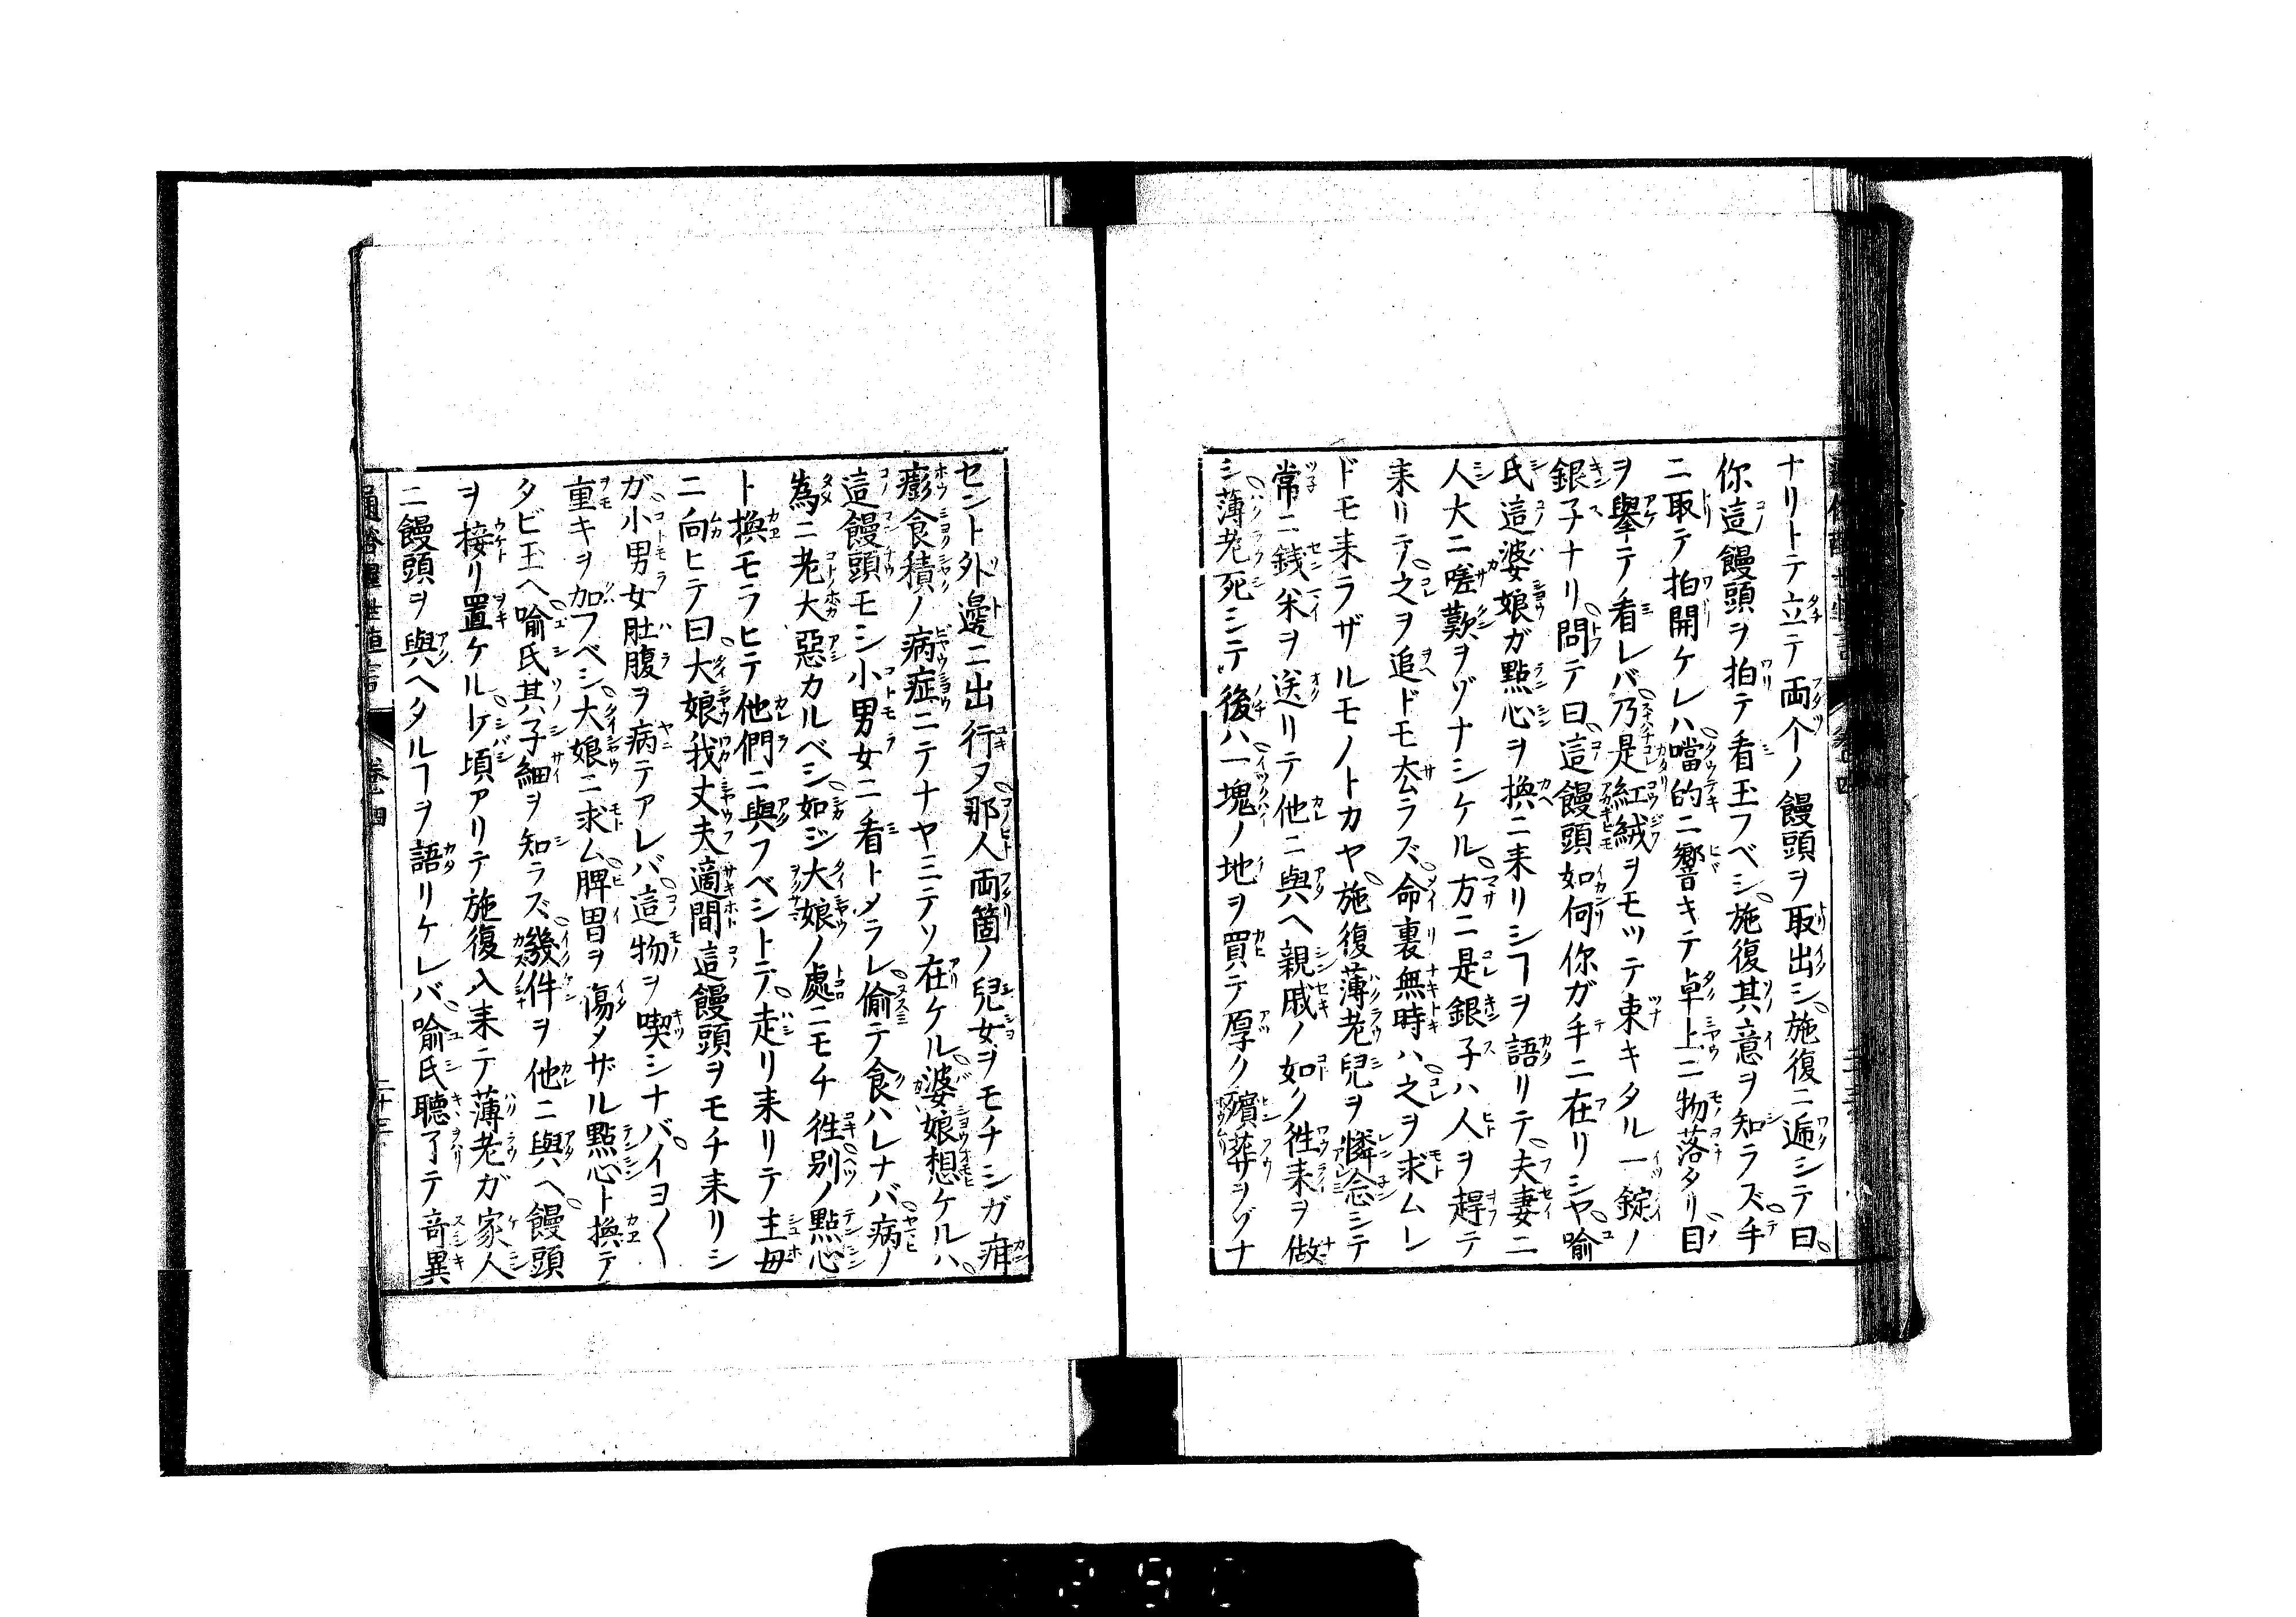 ナリトテ立テ両个ノ饅頭ヲ取出シ。施復ニ逓シテ曰。
你這饅頭ヲ拍テ看玉フベシ。施復其意ヲ知ラズ。手
ニ取テ拍開ケレハ。噹的ニ響キテ卓上ニ物落タリ。目
ヲ擧テ看レバ。乃是紅絨ヲモツテ束キタル一錠ノ
銀子ナリ。問テ曰。這饅頭如何你ガ手ニ在リシヤ。喩
氏這婆娘ガ點心ヲ換ニ来リシヿヲ語リテ。夫妻二
人大ニ嗟歎ヲゾナシケル。方ニ是銀子ハ人ヲ趕テ
来リテ。之ヲ追ドモ厺ラズ。命裏無時ハ。之ヲ求ムレ
ドモ来ラザルモノトカヤ。施復薄老兒ヲ憐念シテ
常ニ銭米ヲ送リテ他ニ與ヘ。親戚ノ如ク徃来ヲ做
シ。薄老死シテ後ハ。一塊ノ地ヲ買テ厚ク殯葬ヲゾナ
セント外邊ニ出行ヌ。那人両箇ノ兒女ヲモチシガ。疳
膨食積ノ病症ニテナヤミテソ在ケル。婆娘想ケルハ。
這饅頭モシ小男女ニ看トメラレ。偷テ食ハレナバ。病ノ
為ニ老大惡カルベシ。如ジ大娘ノ處ニモチ徃。别ノ點心
ト換モラヒテ他們ニ與フベシトテ。走リ来リテ主毋
ニ向ヒテ曰。大娘我丈夫適間這饅頭ヲモチ来リシ
ガ。小男女肚腹ヲ病テアレバ。這物ヲ喫シナバ。イヨ〱
重キヲ加フベシ。大娘ニ求ム。脾胃ヲ傷メザル點心ト換テ
タビ玉ヘ。喩氏其子細ヲ知ラズ。幾件ヲ他ニ與ヘ。饅頭
ヲ接リ置ケル。頃アリテ施復入来テ薄老ガ家人
ニ饅頭ヲ與ヘタルヿヲ語リケレバ。喩氏聴了テ竒異
卷四